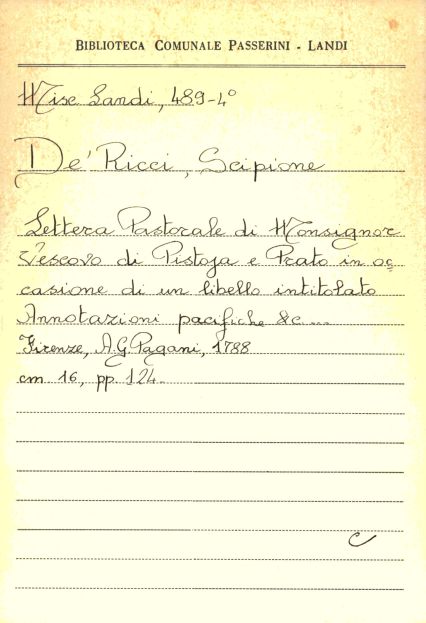 BIBLIOTECA COMUNALE PASSERINI - LANDI
Misc Landi, 489-4°
De' Ricci, Scipione
Lettera Pastorale di Monsignor
Vescovo di Pistoja e Prato in oc
casione di un libello intitolato
Annotazioni pacifiche &c...
Firenze, A.G. Pagani, 1788
cm 16, pp. 124.
C